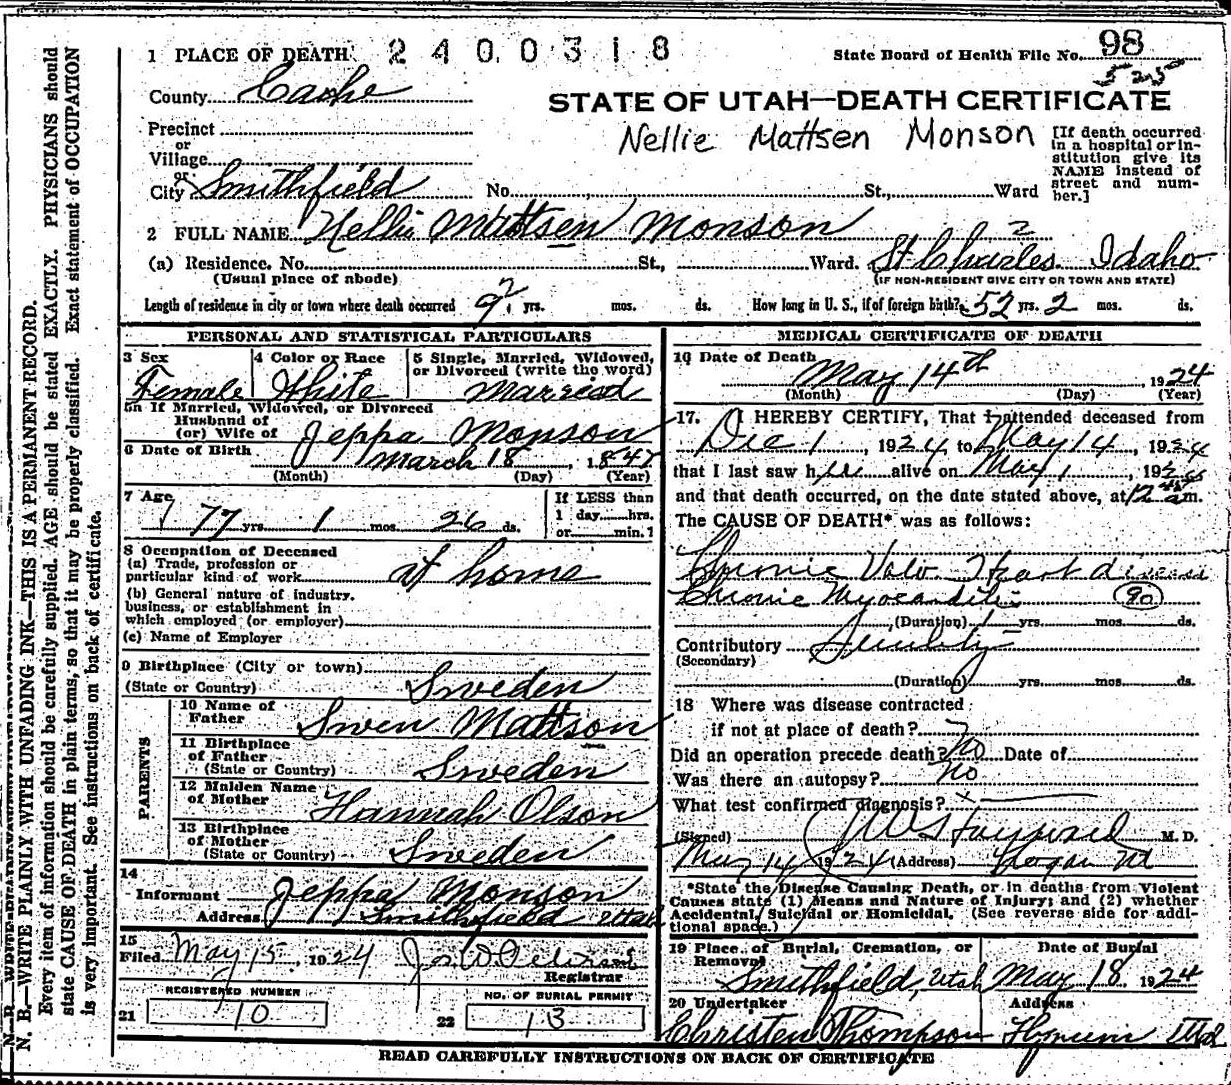 1 PLACE OF DEATH 2400318 State Board of Health File No. 98
525
County Cache
STATE OF UTAH—DEATH CERTIFICATE
Precinct
or
Village
or
City Smithfield No. St., Ward
Nellie Mattsen Monson
[If death occurred
in a hospital or in-
stitution give its
NAME instead of
street and num-
ber.]
2 FULL NAME Nellie Mattsen Monson 2
(a) Residence. No. St., Ward. St Charles Idaho
(Usual place of abode) (IF NON-RESIDENT GIVE CITY OR TOWN AND STATE)
Length of residence in city or town where death occurred 9? yrs. mos. ds. How long in U. S., if of foreign birth? 52 yrs. 2 mos. ds.
PERSONAL AND STATISTICAL PARTICULARS
3 Sex Female
4 Color or Race White
5 Single, Married, Widowed,
or Divorced (write the word)
Married
5a If Married, Widowed, or Divorced
Husband of
(or) Wife of Jeppa Monson
6 Date of Birth March 18, 1847
(Month) (Day) (Year)
7 Age 77 yrs. 1 mos. 26 ds.
If LESS than
1 day hrs.
or min.?
8 Occupation of Deceased
(a) Trade, profession or
particular kind of work at home
(b) General nature of industry,
business, or establishment in
which employed (or employer)
(c) Name of Employer
9 Birthplace (City or town)
(State or Country) Sweden
PARENTS
10 Name of
Father Swen Mattson
11 Birthplace
of Father
(State or Country) Sweden
12 Maiden Name
of Mother Hannah Olson
13 Birthplace
of Mother
(State or Country) Sweden
14
Informant Jeppa Monson
Address Smithfield Utah
15
Filed May 15, 1924
Registrar
REGISTERED NUMBER
21 10
NO. OF BURIAL PERMIT
22 13
MEDICAL CERTIFICATE OF DEATH
16 Date of Death May 14th, 1924
(Month) (Day) (Year)
17. I HEREBY CERTIFY, That I attended deceased from
Dec 1, 1924 to May 14, 1924
that I last saw her alive on May 1, 1924
and that death occurred, on the date stated above, at 12 45 a m.
The CAUSE OF DEATH* was as follows:
Chronic Valv Heart disease
Chronic Myocarditis 90
(Duration) yrs. mos. ds.
Contributory Senility
(Secondary)
(Duration) yrs. mos. ds.
18 Where was disease contracted
if not at place of death? ?
Did an operation precede death? No Date of
Was there an autopsy? No
What test confirmed diagnosis?
(Signed) Hayward M. D.
May 14 1924 (Address) Logan Ut
*State the Disease Causing Death, or in deaths from Violent
Causes state (1) Means and Nature of Injury; and (2) whether
Accidental, Suicidal or Homicidal. (See reverse side for addi-
tional space.)
19 Place of Burial, Cremation, or
Removal Date of Burial
Smithfield, Utah May 18 1924
20 Undertaker Address
Christen Thompson Hyrum Utah
READ CAREFULLY INSTRUCTIONS ON BACK OF CERTIFICATE
N. B.—WRITE PLAINLY WITH UNFADING INK—THIS IS A PERMANENT RECORD.
Every item of information should be carefully supplied. AGE should be stated EXACTLY. PHYSICIANS should
state CAUSE OF DEATH in plain terms, so that it may be properly classified. Exact statement of OCCUPATION
is very important. See instructions on back of certificate.